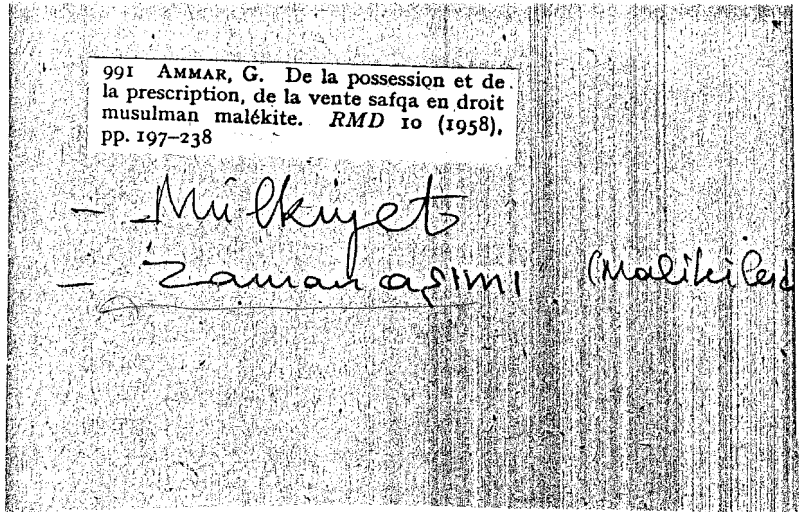 991 AMMAR, G. De la possession et de
la prescription, de la vente safqa en droit
musulman malékite. RMD 10 (1958),
pp. 197–238
- Mülkiyet
- Zaman aşımı (Malikiler